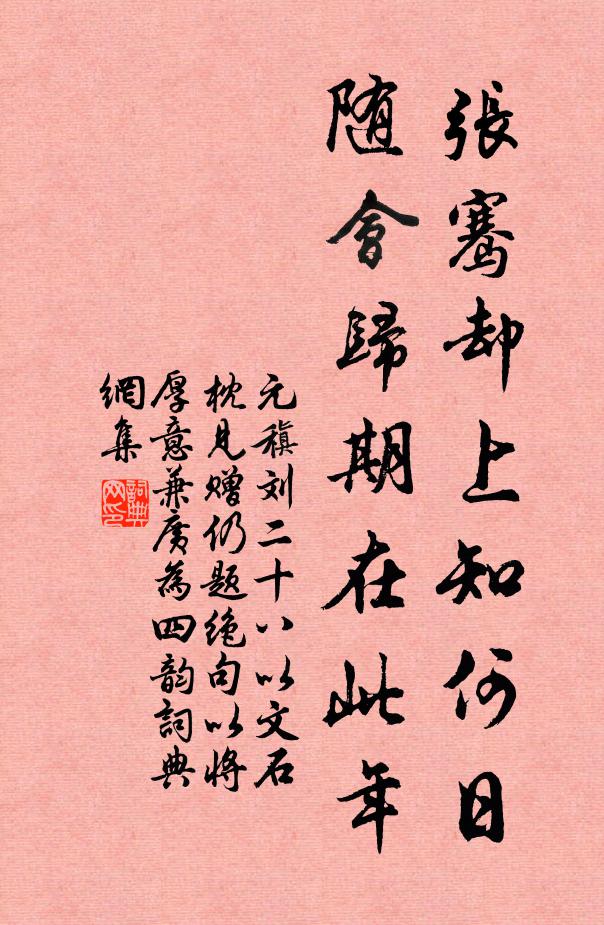 張騫却上知何日
随會歸期在此年
元稹刘二十八以文石
枕見赠仍题绝句以將
厚意兼廣為四韵詞典
網集
詞典网印